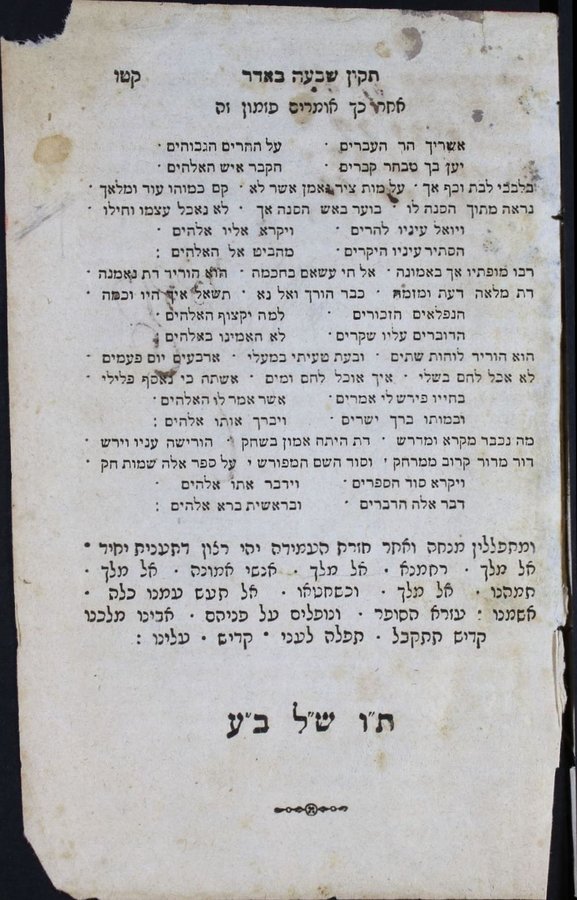 תקון שבעה באדר קטו
אחר כך אומרים פזמון זה
אשריך הר העברים · על ההרים הגבוהים ·
יען בך מבחר קברים · הקבר איש האלהים ·
בלבבי לבת וכף אך · על מות ציר נאמן אשר לא · קם כמוהו עוד ומלאך ·
נראה מתוך הסנה לו · בוער באש הסנה אך · לא נאכל עצמו וחילו ·
ויואל עיניו להרים · ויקרא אליו אלהים ·
הסתיר עיניו היקרים · מהביט אל האלהים :
רבו מופתיו אך באמונה · אל חי עשאם בחכמה · הוא הוריד דת נאמנה ·
דת מלאה דעת ומזמה · כבר הורך ואל נא · תשאל איך היו וכמה ·
הנפלאים הזכורים · למה יקצוף האלהים ·
הדוברים עליו שקרים · לא האמינו באלהים :
הוא הוריד לוחות שתים · ובעת טעיתי במעלי · ארבעים יום פעמים ·
לא אכל לחם בשלי · איך אוכל לחם ומים · אשתה כי נאסף פלילי ·
בחייו פירש לי אמרים · אשר אמר לו האלהים ·
ובמותו ברך ישרים · ויברך אותו אלהים :
מה נכבר מקרא ומדרש · דת היתה אמון בשחק · הורישה עניו וירש ·
דוד מדור קרוב ממרחק · וסוד השם המפורש · על ספר אלה שמות חק ·
ויקרא סוד הספרים · וידבר אתו אלהים ·
דבר אלה הדברים · ובראשית ברא אלהים :
ומתפללין מנחה ואחר חזרת העמידה יהי רצון דתענית יחיד ·
אל מלך · רחמנא · אל מלך · אנשי אמונה · אל מלך ·
תמהנו · אל מלך · וכשחטאו · אל תעש עמנו כלה ·
אשמנו · עזרא הסופר · ונופלים על פניהם · אבינו מלכנו
קדיש תתקבל · תפלה לעני · קדיש · עלינו :
ת״ו ש״ל ב״ע